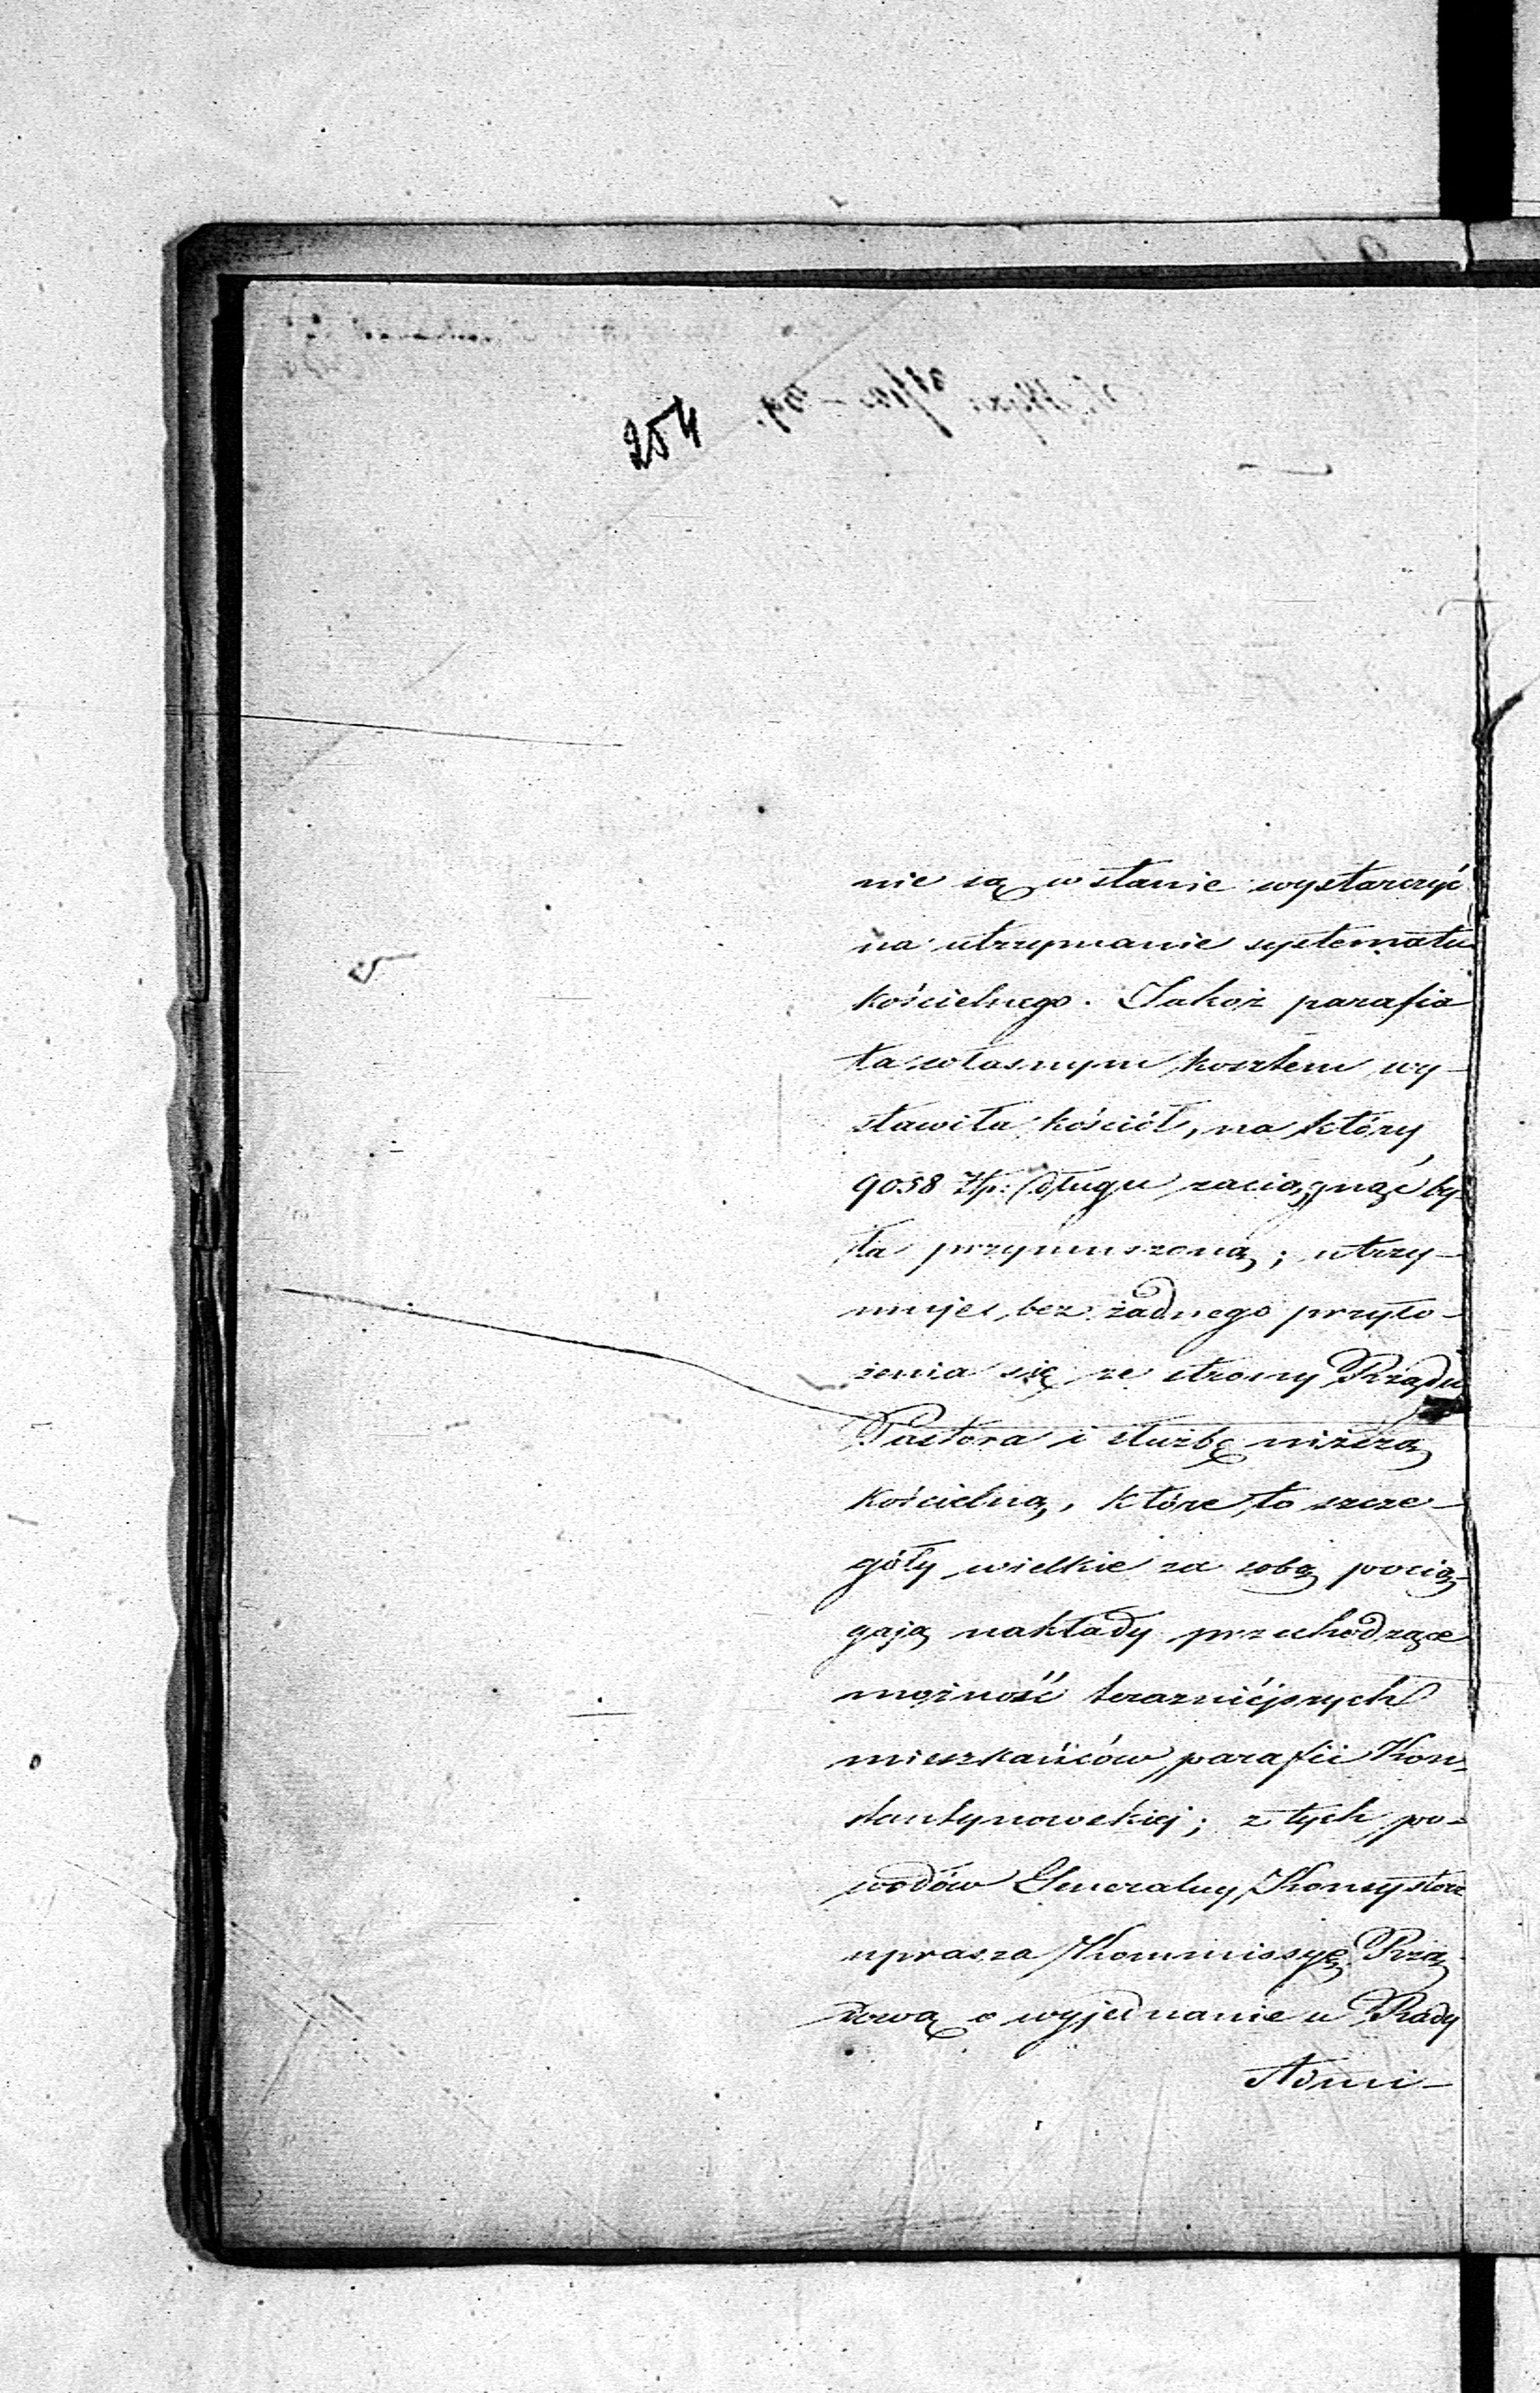 254
nie są w stanie wystarczyć
na utrzymanie systematu
kościelnego. Jakoż parafia
ta własnym kosztem wy-
stawiła kościół, na który
9058 Złp: długu zaciągnąć by-
ła przymuszoną; utrzy-
muje bez żadnego przyło-
żenia się ze strony Rządu
Pastora i służbę niższą
kościelną, które to szcze-
góły wielkie za sobą pocią-
gają nakłady przechodzące
możność teraznićjszych
mieszkańców parafii Kon-
stantynowskiej; z tych po-
wodów Generalny Konsystorz
uprasza Kommissyę Rzą-
dową o wyjednanie u Rady
Admi-